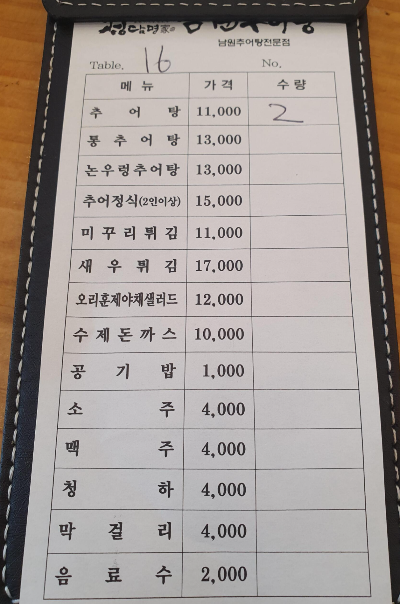 남원추어탕전문점
Table. 16 No.
메뉴 가격 수량
추어탕 11,000 2
통추어탕 13,000
논우렁추어탕 13,000
추어정식(2인이상) 15,000
미꾸리튀김 11,000
새우튀김 17,000
오리훈제야채샐러드 12,000
수제돈까스 10,000
공기밥 1,000
소주 4,000
맥주 4,000
청하 4,000
막걸리 4,000
음료수 2,000